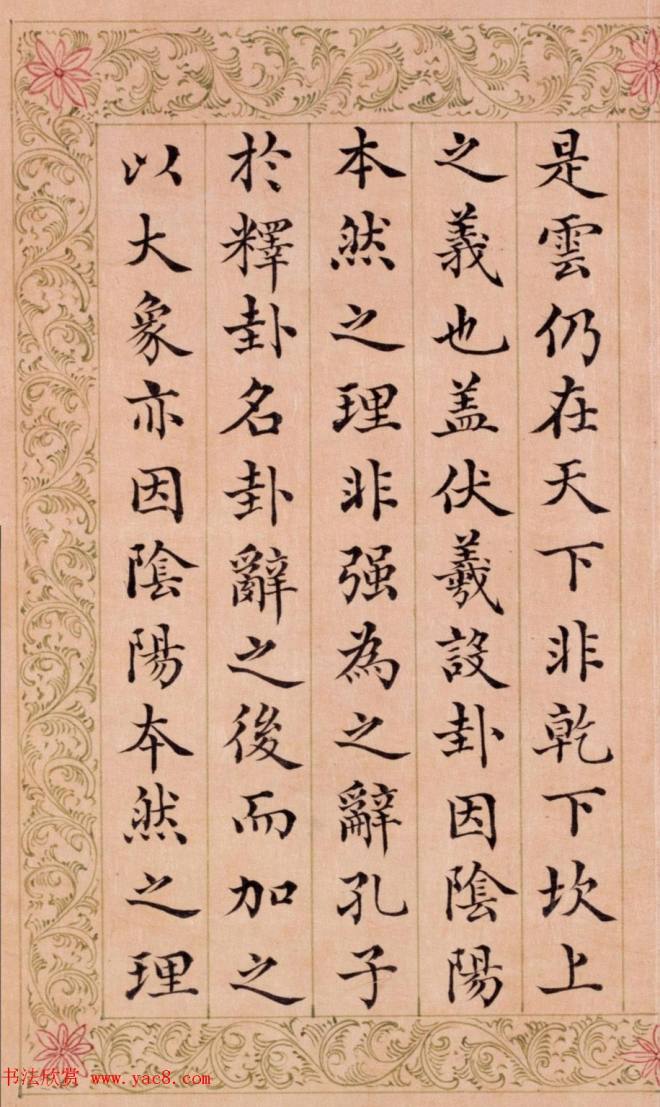 是雲仍在天下非乾下坎上
之義也盖伏羲設卦因陰陽
本然之理非强為之辭孔子
於釋卦名卦辭之後而加之
以大象亦因陰陽本然之理
书法欣赏 www.yac8.com